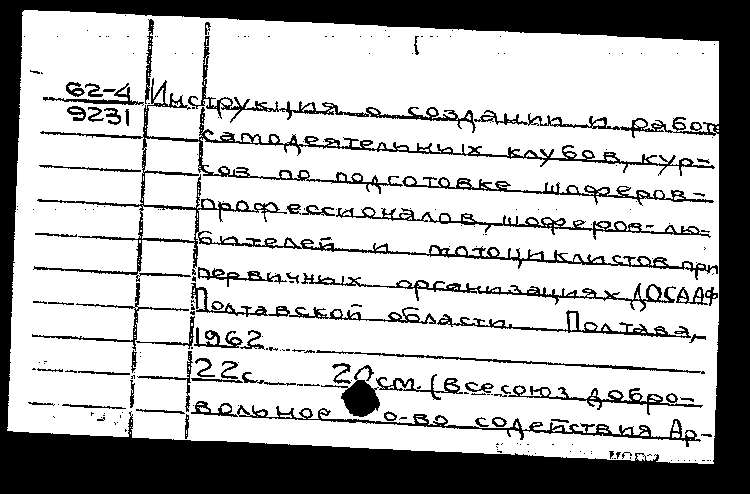 62-4 Инструкция о создании и работе
9231
самодеятельных клубов, кур=
сов по подготовке шоферов=
профессионалов, шоферов-лю=
бителей и мотоциклистов при
первичных организациях ДОСААФ
Полтавской области. Полтава,
1962.
22с. 20см. (Всесоюз. добро=
вольное о-во содействия Ар-